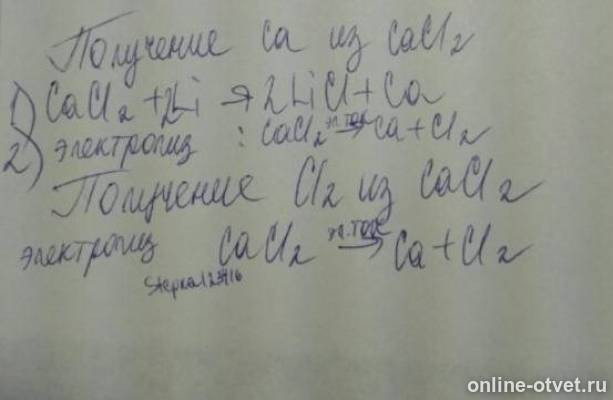 Получение Ca из CaCl2
1) CaCl2 + 2Li → 2LiCl + Ca
2) электролиз : CaCl2 эл.ток→ Ca + Cl2
Получение Cl2 из CaCl2
электролиз CaCl2 эл.ток→ Ca + Cl2
online-otvet.ru